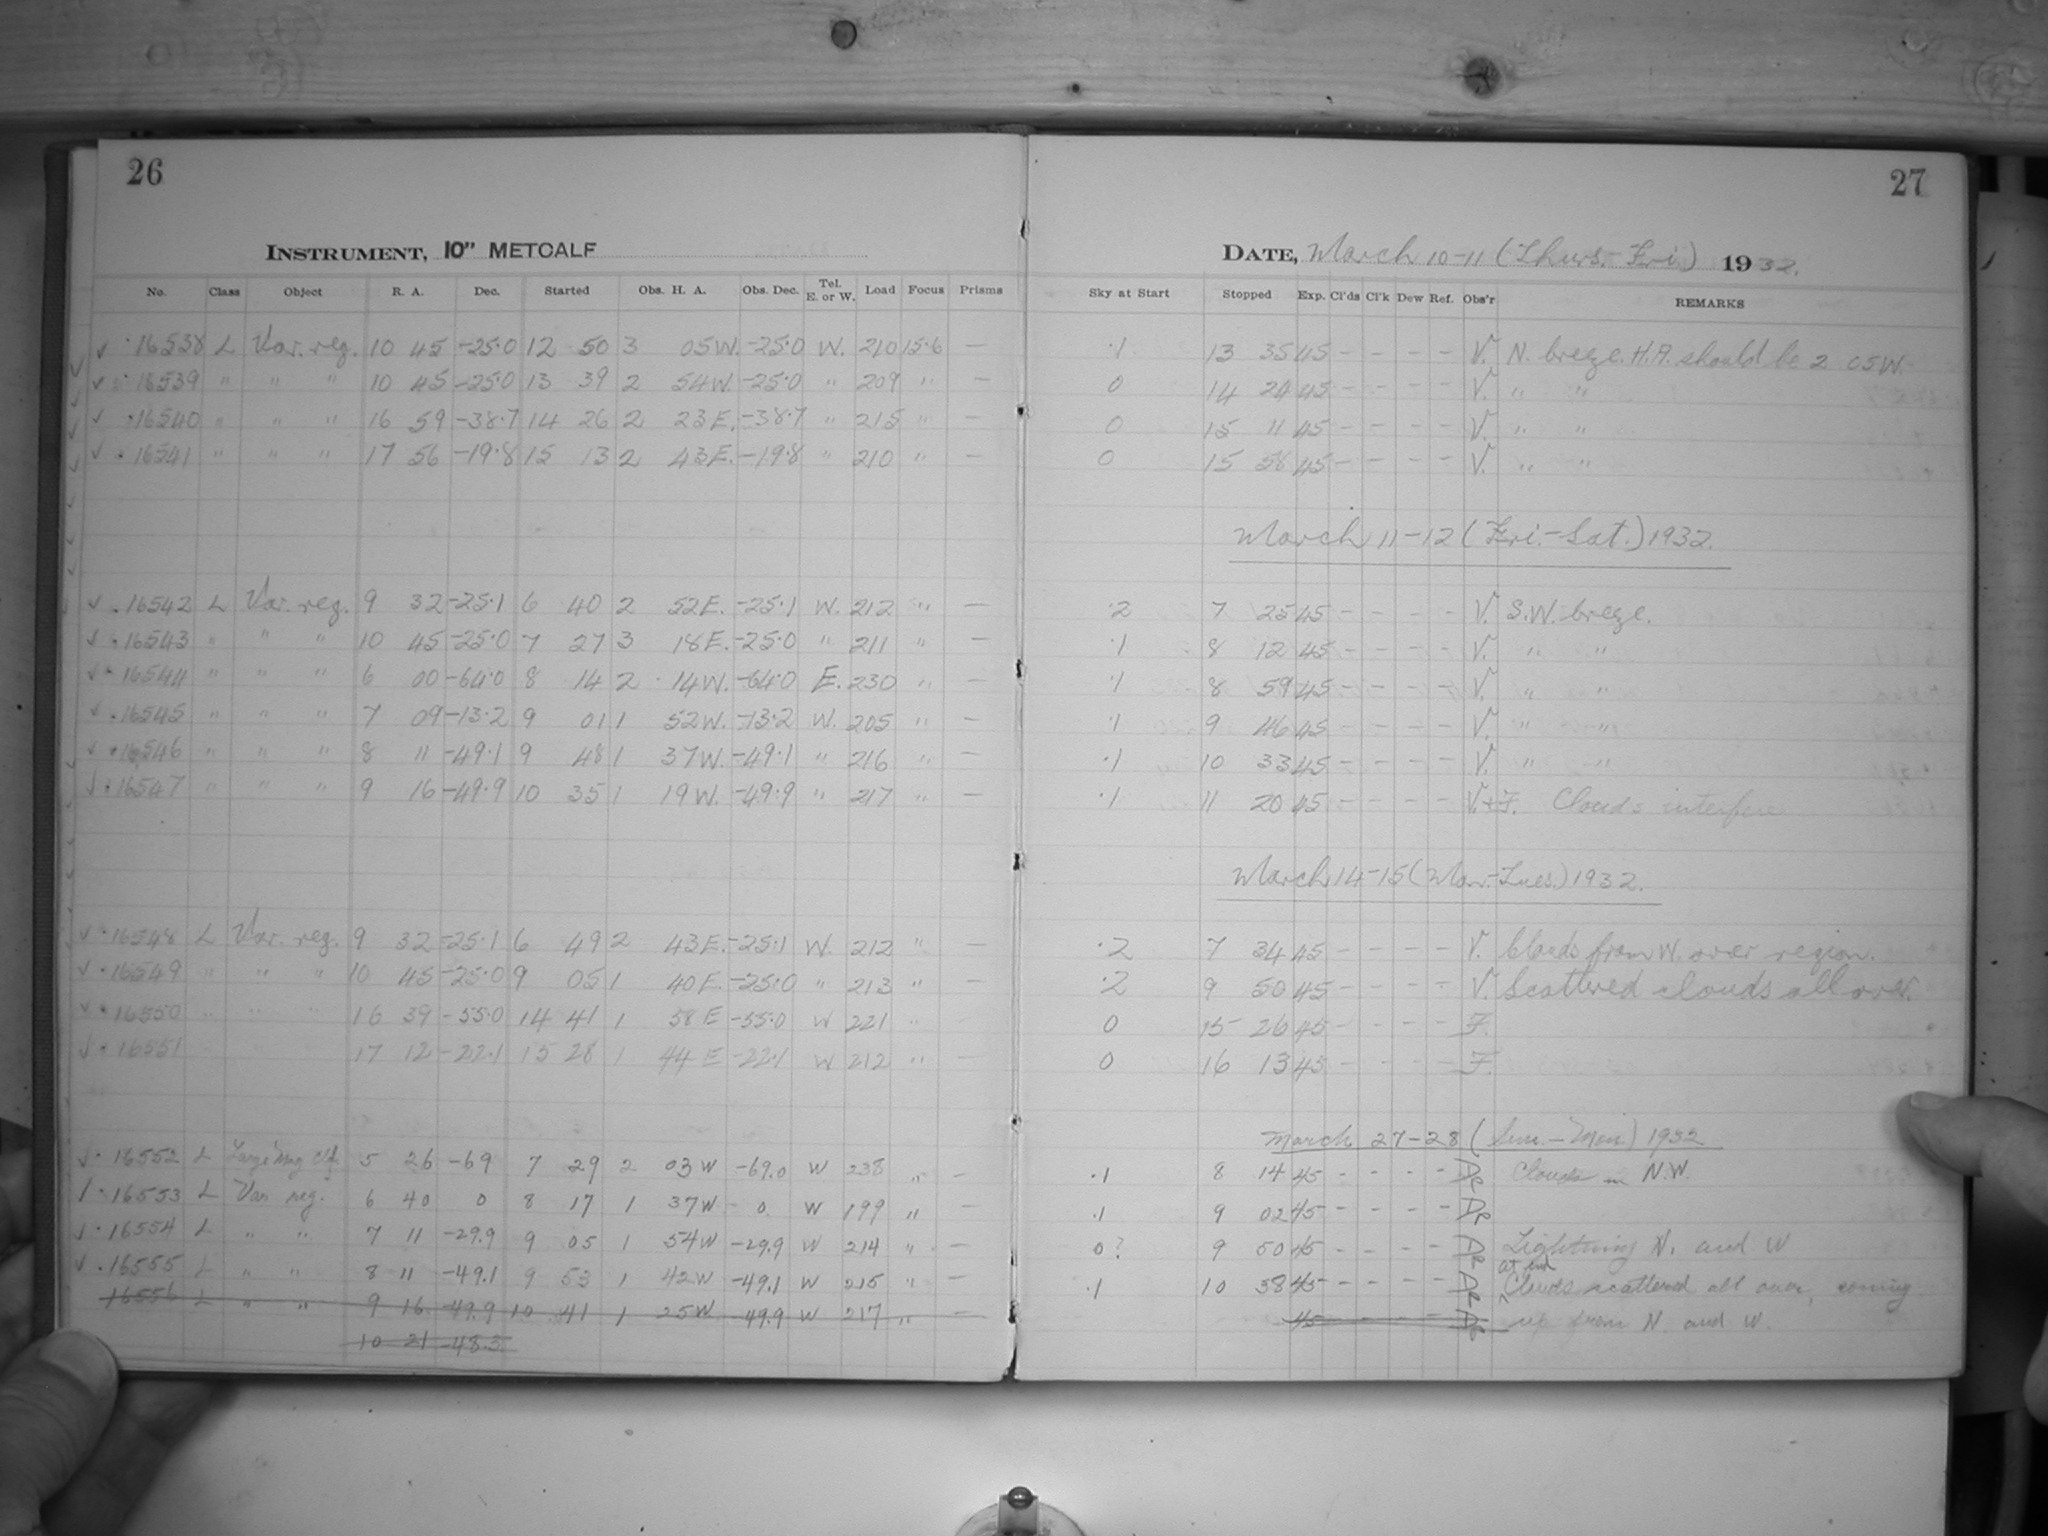 26
INSTRUMENT, 10" METCALF
No. Class Object R. A. Dec. Started Obs. H. A. Obs. Dec. Tel. E. or W. Load Focus Prisms
16538 L Var. reg. 10 45 -25.0 12 50 3 05 W. -25.0 W. 210 15.6 —
16539 " " " 10 45 -25.0 13 39 2 54 W. -25.0 " 209 " —
16540 " " " 16 59 -38.7 14 26 2 23 E. -38.7 " 215 " —
16541 " " " 17 56 -19.8 15 13 2 43 E. -19.8 " 210 " —
16542 L Var. reg. 9 32 -25.1 6 40 2 52 E. -25.1 W. 212 " —
16543 " " " 10 45 -25.0 7 27 3 18 E. -25.0 " 211 " —
16544 " " " 6 00 -64.0 8 14 2 14 W. -64.0 E. 230 " —
16545 " " " 7 09 -13.2 9 01 1 52 W. -13.2 W. 205 " —
16546 " " " 8 11 -49.1 9 48 1 37 W. -49.1 " 216 " —
16547 " " " 9 16 -49.9 10 35 1 19 W. -49.9 " 217 " —
16548 L Var. reg. 9 32 -25.1 6 49 2 43 E. -25.1 W. 212 " —
16549 " " " 10 45 -25.0 9 05 1 40 E. -25.0 " 213 " —
16550 " " " 16 39 -55.0 14 41 1 58 E -55.0 W 221 " —
16551 17 12 -22.1 15 28 1 44 E -22.1 W 212 " —
16552 L Large Mag Cld. 5 26 -69 7 29 2 03 W -69.0 W 238 " —
16553 L Var reg. 6 40 0 8 17 1 37 W 0 W 199 " —
16554 L " " 7 11 -29.9 9 05 1 54 W -29.9 W 214 " —
16555 L " " 8 11 -49.1 9 53 1 42 W -49.1 W 215 " —
16556 L " " 9 16 -49.9 10 41 1 25 W -49.9 W 217 " —
10 21 -48.3
27
DATE, March 10-11 (Thurs.-Fri) 1932.
Sky at Start Stopped Exp. Cl'ds Cl'k Dew Ref. Obs'r REMARKS
.1 13 35 45 - - - - V. N. breze. H.A. should be 2 05 W.
0 14 24 45 - - - - V. " "
0 15 11 45 - - - - V. " "
0 15 58 45 - - - - V. " "
March 11-12 (Fri.-Sat.) 1932.
.2 7 25 45 - - - - V. S.W. breze.
.1 8 12 45 - - - - V. " "
.1 8 59 45 - - - - V. " "
.1 9 46 45 - - - - V. " "
.1 10 33 45 - - - - V. " "
.1 11 20 45 - - - - V.+F. Clouds interfere
March 14-15 (Mon.-Tues.) 1932.
.2 7 34 45 - - - - V. Clouds from W. over region.
.2 9 50 45 - - - - V. Scattered clouds all over.
0 15 26 45 - - - - F.
0 16 13 45 - - - - F.
March 27-28 (Sun.-Mon) 1932
.1 8 14 45 - - - - De Clouds in N.W.
.1 9 02 45 - - - - De
0? 9 50 45 - - - - De Lightning N. and W
at end
.1 10 38 45 - - - - De Clouds scattered all over, coming
45 - - - - De up from N. and W.